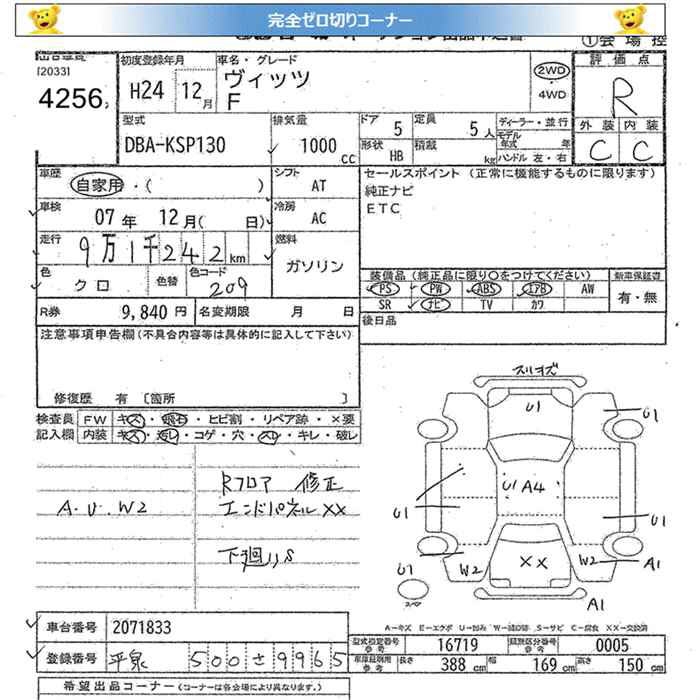 完全ゼロ切りコーナー
①会場控
[2033]
4256
初度登録年月
H24 12月
車名・グレード
ヴィッツ
F
2WD
・
4WD
評価点
R
外装 内装
C C
型式
DBA-KSP130
排気量
1000 CC
ドア 5
定員 5人
ディーラー・並行
モデル年式 年
ハンドル 左・右
形状 HB
積載 kg
車歴
自家用・( )
シフト AT
車検
07年 12月( 日)
冷房 AC
走行
9万1千242km
燃料
ガソリン
色
クロ
色替
色コード
209
セールスポイント (正常に機能するものに限ります)
純正ナビ
ETC
装備品 (純正品に限り○をつけてください)
新車保証書
PS PW ABS エアB AW
有・無
SR ナビ TV カワ
R券 9,840円
名変期限 月 日
後日品
注意事項申告欄(不具合内容等は具体的に記入して下さい)
修復歴 有 [箇所 ]
検査員 FW キズ・飛石・ヒビ割・リペア跡・×要
記入欄 内装 キズ・汚レ・コゲ・穴・スレ・キレ・破レ
A.U.W2
Rフロア 修正
エンドパネルXX
下廻リS
スリキズ
U1
U1
U1 A4
U1
U1
W2
XX
W2
A1
U1
スペア
A1
A-キズ E-エクボ U-凹み W-補修跡 S-サビ C-腐食 XX-交換済
車台番号 2071833
登録番号 平泉 500さ9965
型式指定番号 参考 16719
類別区分番号 参考 0005
車庫証明用 参考 長さ 388 cm 幅 169 cm 高さ 150 cm
希望出品コーナー(コーナーは各会場により異なります。)